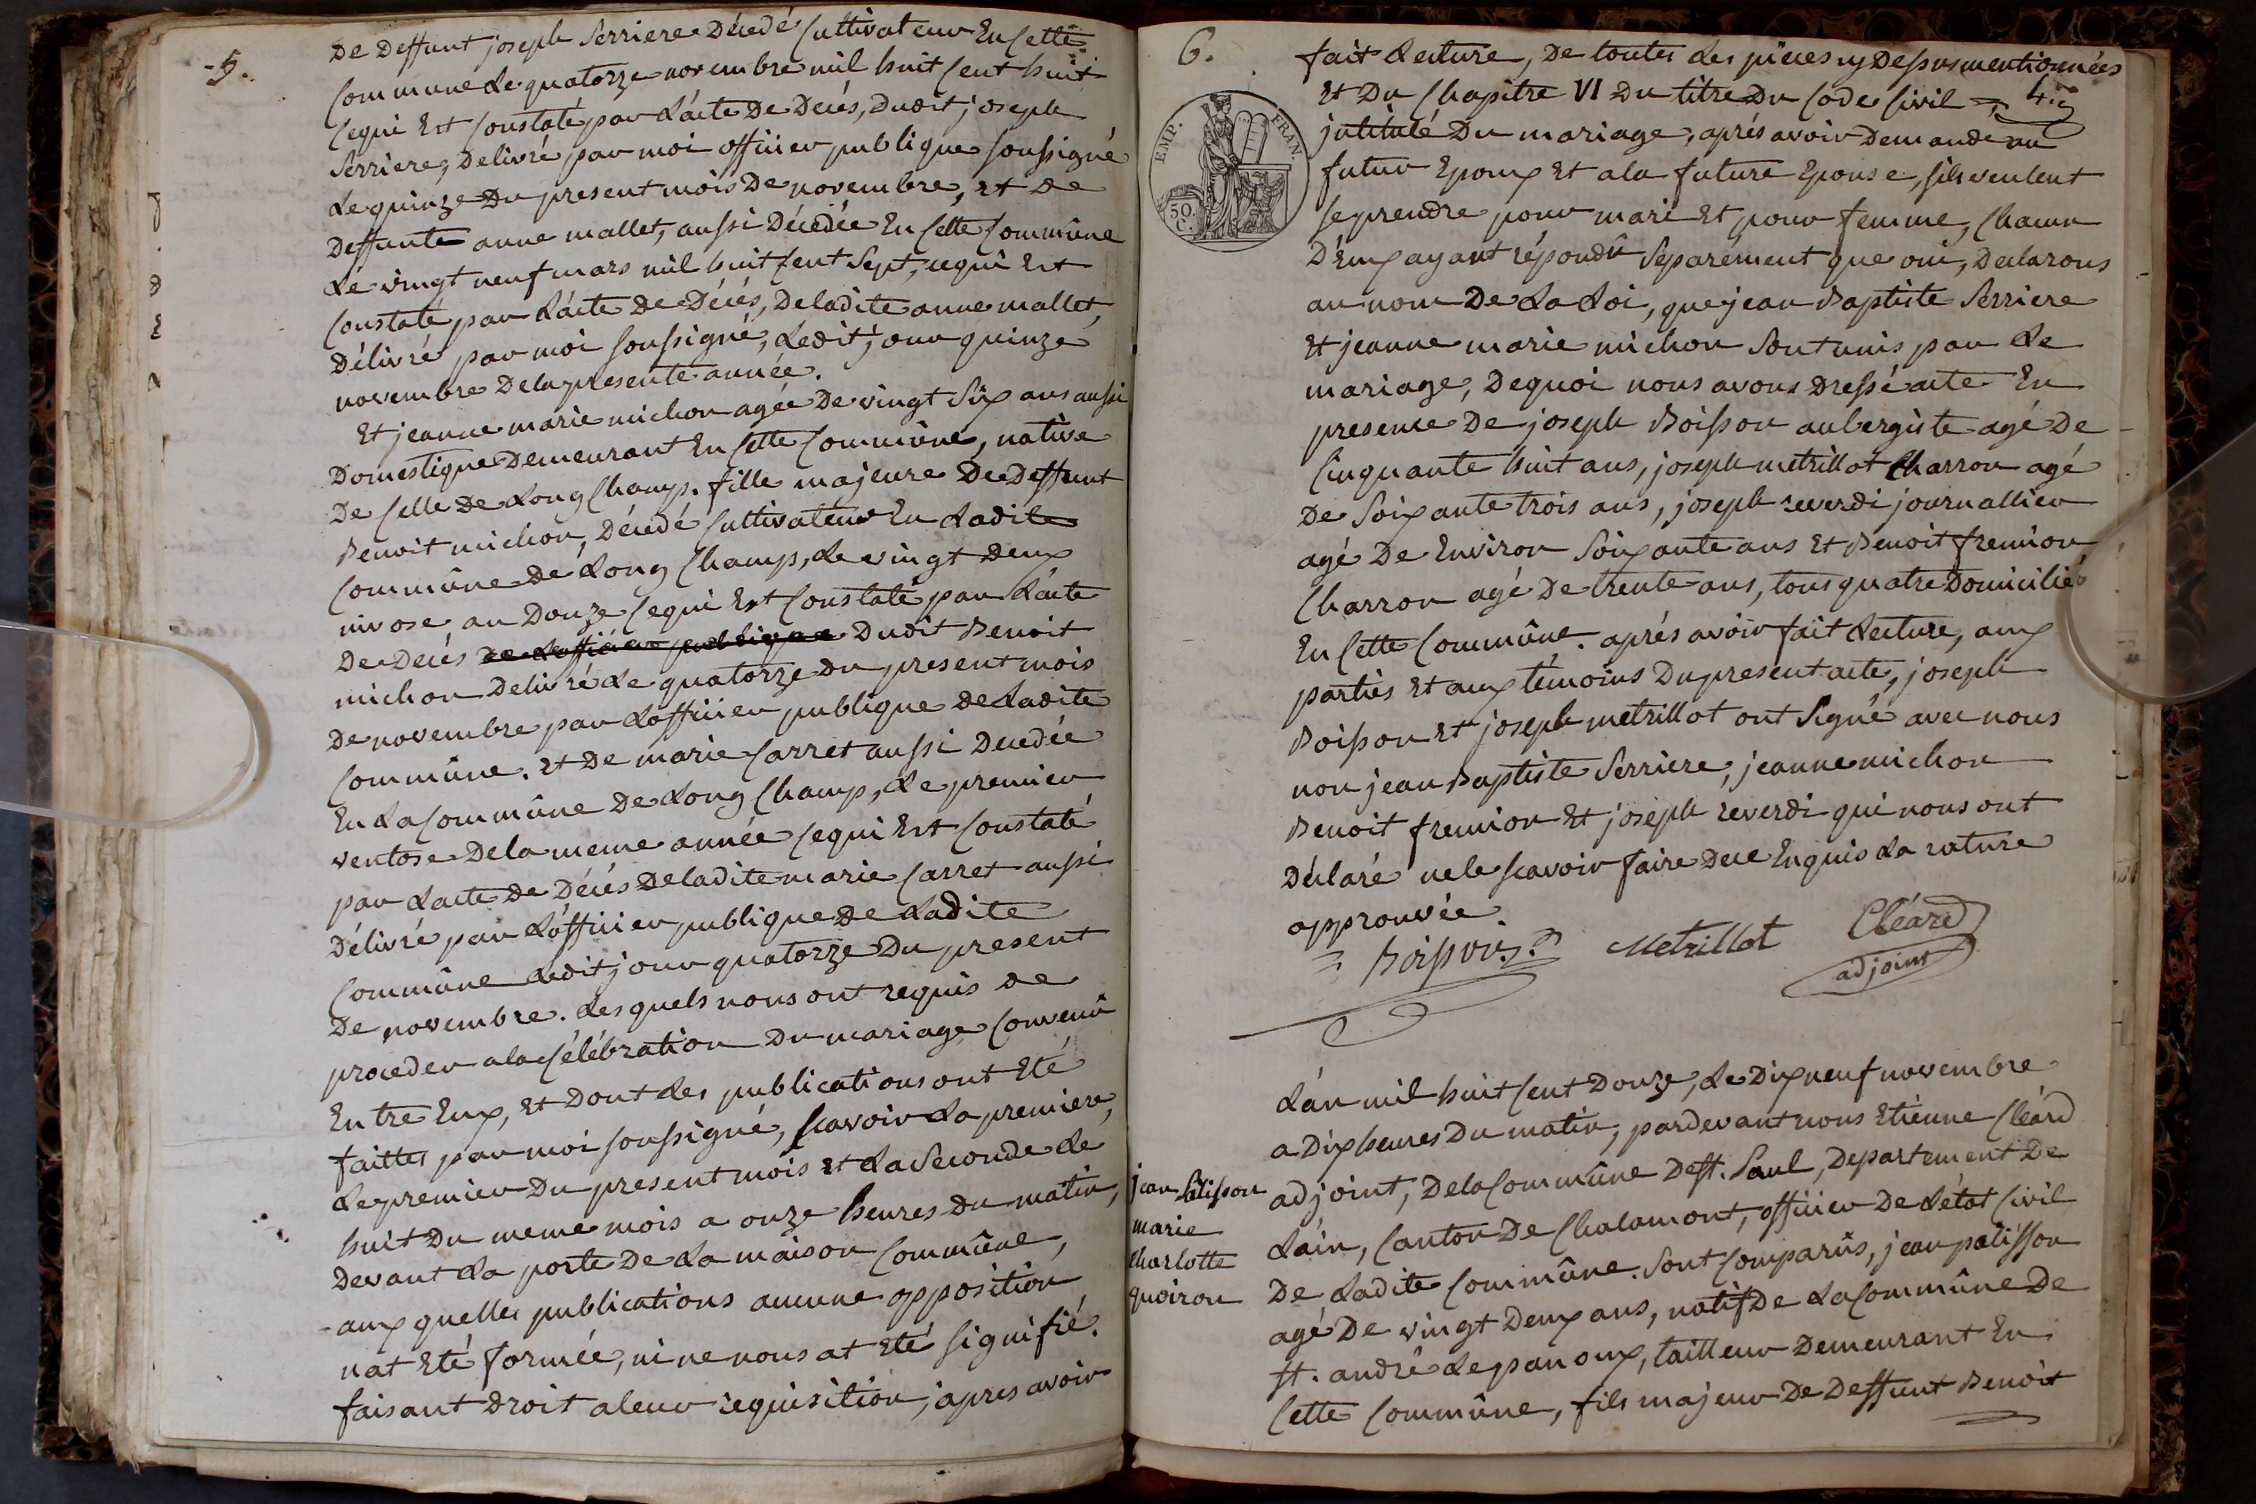 5.
De Deffunt joseph Serriere Décedé Cultivateur En Cette
Commune Le quatorze novembre mil huit Cent huit
Cequi Est Constaté par L'acte De Decés, Dudit joseph
Serriere, Delivré par moi officier publique soussigné
Le quinze Du present mois De novembre, et De
Deffunte anne mallet, aussi Décedée En Cette Commûne
Le vingt neuf mars mil huit Cent Sept, cequi Est
Constaté par L'acte De Décés, De ladite anne mallet,
Délivré par moi soussigné, Ledit jour quinze
novembre De la presente année.
Et jeanne marie michon agée De vingt Six ans aussi
Domestique Demeurant En Cette Commûne, native
De Celle De Long Champ. fille majeure De Deffunt
Benoit michon, Décedé Cultivateur En Ladite
Commûne De Long Champ, Le vingt Deux
nivose an Douze Cequi Est Constaté par L'acte
De Decés de Lofficier publique Dudit Benoit
michon Delivré Le quatorze Du present mois
De novembre par Lofficier publique De Ladite
Commûne. Et De marie Carret aussi Decedée
En La Commûne De Long Champ, Le premier
ventose De la meme année Cequi Est Constaté
par Lacte De Décés De ladite marie Carret aussi
Délivré par L'officier publique De Ladite
Commûne Ledit jour quatorze Du present
De novembre. Les quels nous ont requis De
proceder a la Célébration Du mariage Convenû
Entre Eux, Et Dont Les publications ont Eté
faittes par moi soussigné, scavoir La premiere,
Le premier Du present mois Et La Seconde Le
huit Du meme mois a onze heures Du matin,
Devant La porte De La maison Commûne,
aux quelles publications aucune opposition
nat Eté formée, ni ne nous at Eté signifié.
faisant Droit aleur requisition, apres avoir
6.
fait Lecture, De toutes Les piéces cy Dessus mentionnées
Et Du Chapitre VI Du titre Du Code Civil
EMP. FRAN.
50.
C.
jntitulé Du mariage, aprés avoir Demandé au
futur Epoux Et a la future Epouse, sils veulent
se prendre pour mari Et pour femme, Chacun
D'Eux ayant répondû Separément que oui, Declarons
au nom De La Loi, que jean Baptiste Serriere
Et jeanne marie michon Sont unis par Le
mariage, Dequoi nous avons Dressé acte En
presence De joseph Boisson aubergiste agé De
Cinquante huit ans, joseph metrillot Charron agé
De Soixante trois ans, joseph reverdi journallier
agé De Environ Soixante ans Et Benoit fremion
Charron agé De trente ans, tous quatre Domiciliés
En Cette Commûne. aprés avoir fait Lecture, aux
parties Et aux témoins Du present acte, joseph
Boisson Et joseph metrillot ont Signé avec nous
non jean Baptiste Serriere, jeanne michon
Benoit fremion Et joseph reverdi qui nous ont
Déclaré ne le scavoir faire Dece Enquis La rature
approuvée.
Boisson
Metrillot
Cléard
adjoint
L'an mil huit Cent Douze, Le Dix neuf novembre
a Dix heures Du matin, pardevant nous Etienne Cléard
adjoint, De la Commûne De St. Paul, Departement De
Láin, Canton De Chalamont, officier De L'état Civil
De Ladite Commûne. Sont Comparûs, jean palisson
agé De vingt Deux ans, natif De La Commûne De
St. andré Le panoux, tailleur Demeurant En
Cette Commûne, fils majeur De Deffunt Benoit
jean Palisson
marie
Charlotte
quoiron